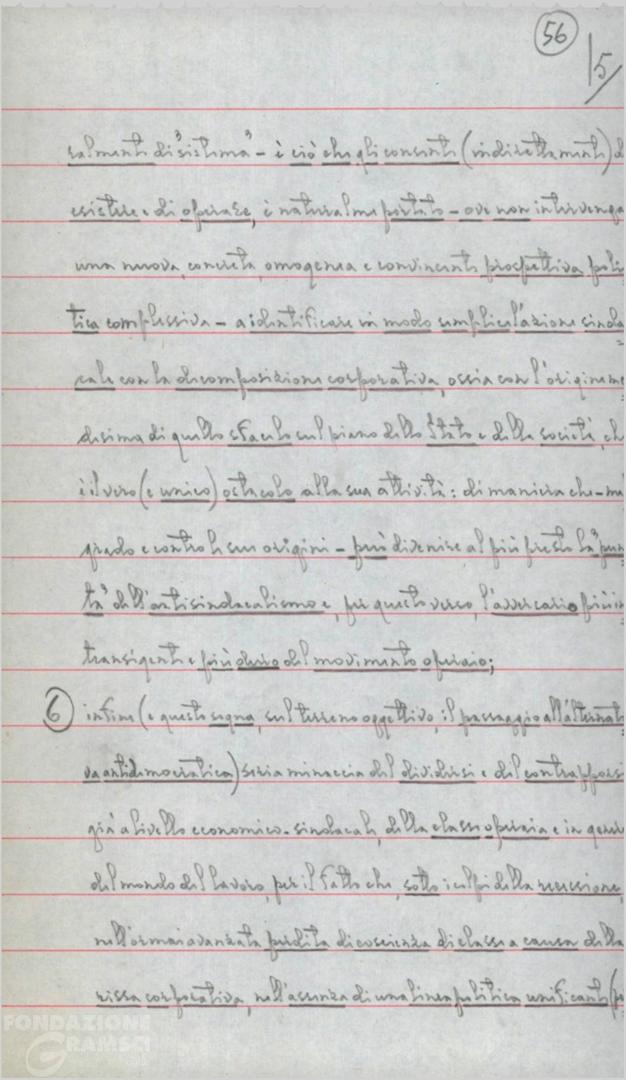 56
15/
salmente di "sistema" - è ciò che gli consente (indirettamente) d
esistere e di operare, è naturalme portato - ove non intervenga
una nuova, concreta, omogenea e convincente prospettiva poli
tica complessiva - a identificare in modo semplice l'azione sinda
cale con la dicomposizione corporativa, ossia con l'origine me
desima di quello sfacelo sul piano dello Stato e della società, ch
è il vero (e unico) ostacolo alla sua attività: di maniera che - ma
grado e contro le sue origini - può divenire al più presto la "pun
ta" dell'antisindacalismo e, per questo verso, l'avversario più in
transigente e più duro del movimento operaio;
6 infine (e questo segna, sul terreno oggettivo, il passaggio all'alternati
va antidemocratica) seria minaccia del dividersi e del contrapporsi
già a livello economico-sindacale, della classe operaia e in gener
del mondo del lavoro, per il fatto che, sotto i colpi della recessione,
nell'ormai avanzata perdita di coscienza di classe a causa della
rissa corporativa, nell'assenza di una linea politica unificante (p
FONDAZIONE
GRAMSCI